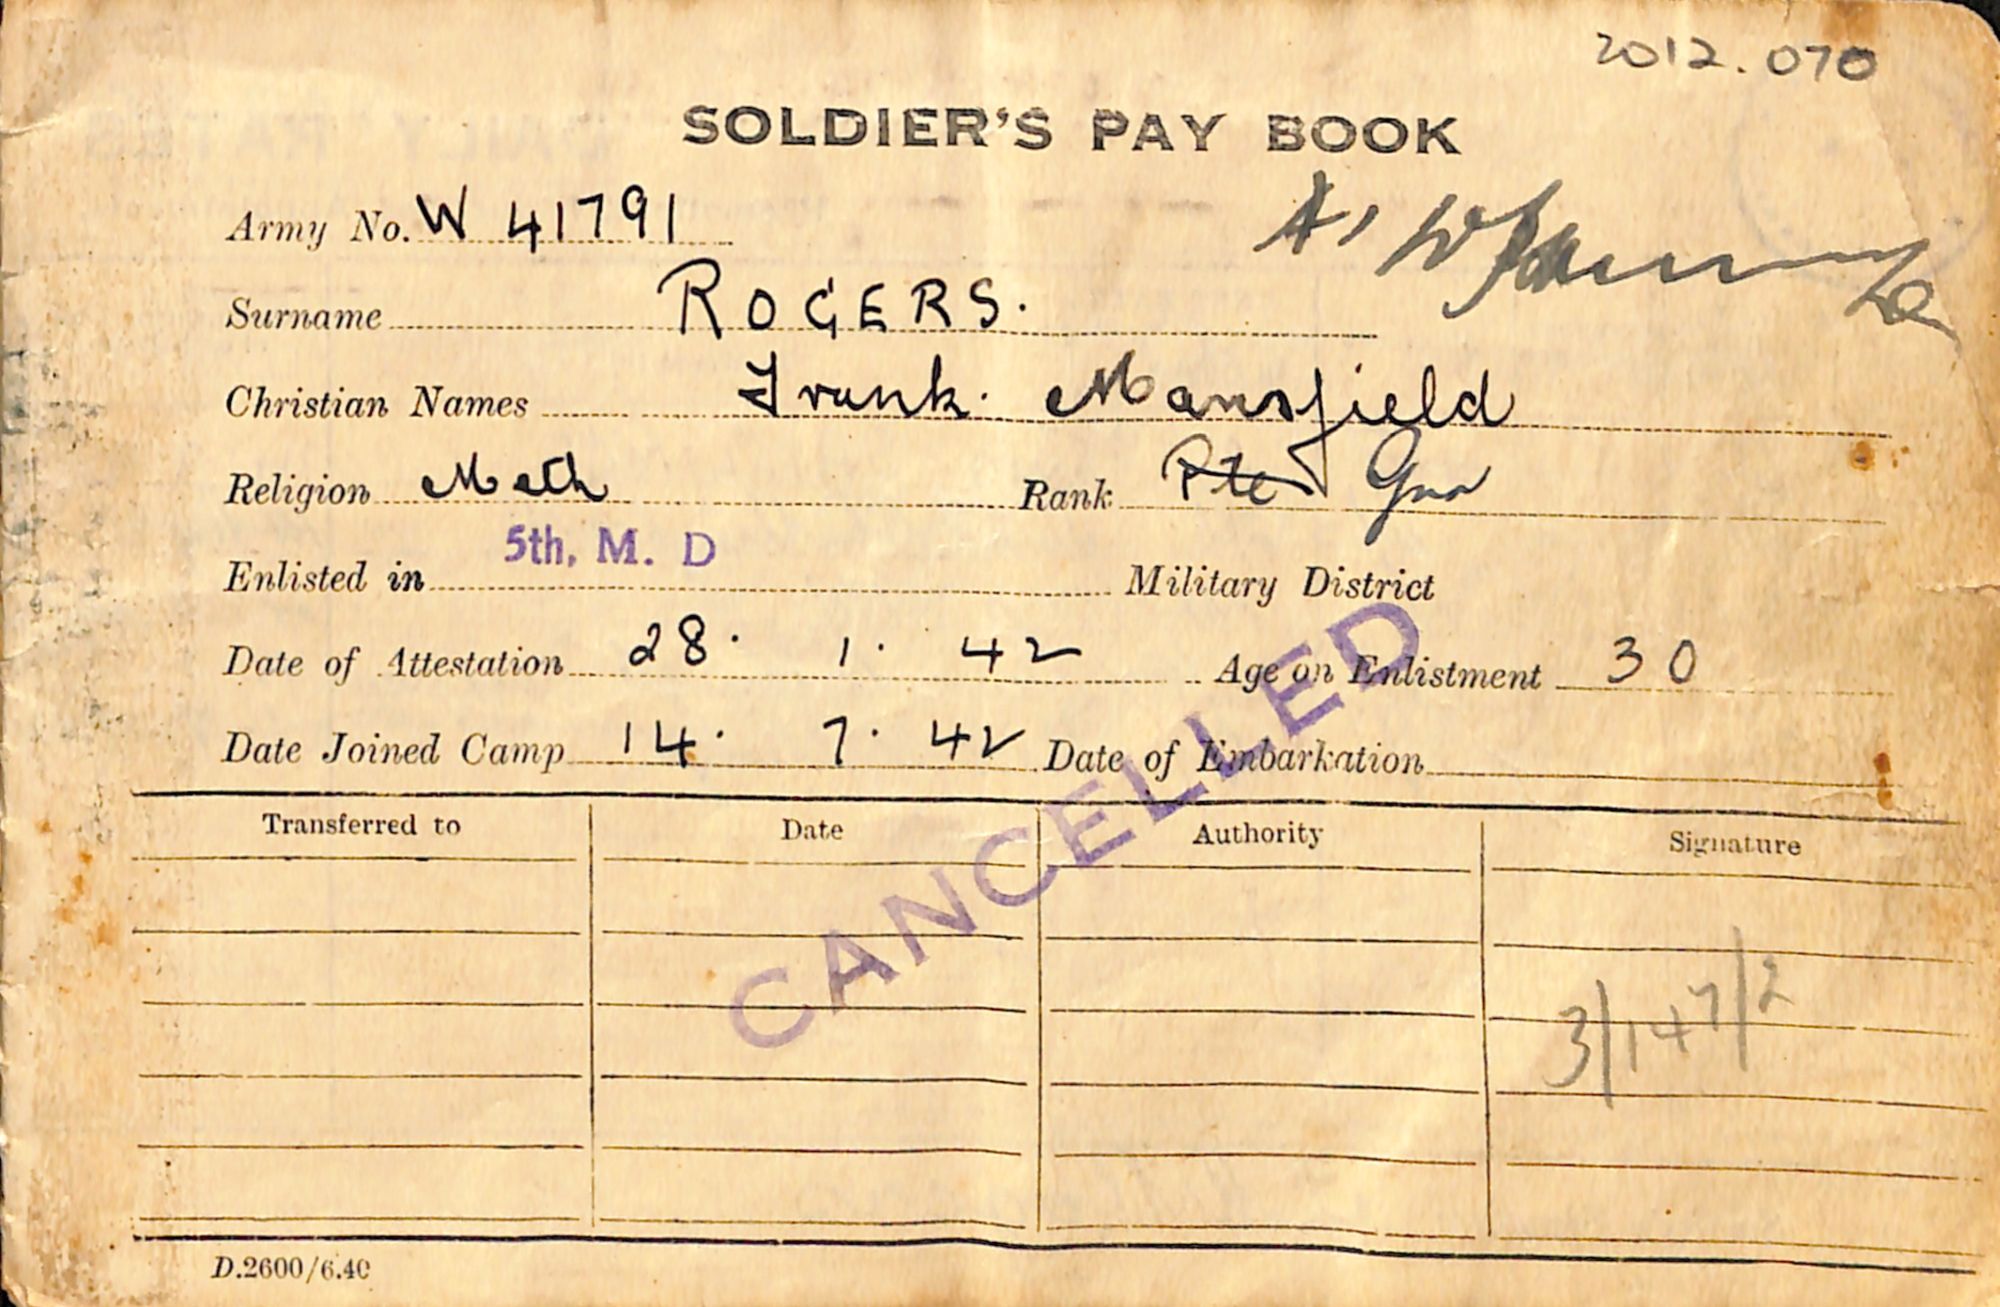 2012.070
SOLDIER'S PAY BOOK
Army No. W 41791
Surname ROGERS.
Christian Names Frank. Mansfield
Religion Meth Rank Pte Gnr
5th. M. D
Enlisted in Military District
Date of Attestation 28. 1. 42 Age on Enlistment 30
Date Joined Camp 14. 7. 42 Date of Embarkation
CANCELLED
Transferred to Date Authority Signature
3/147/2
D.2600/6.40